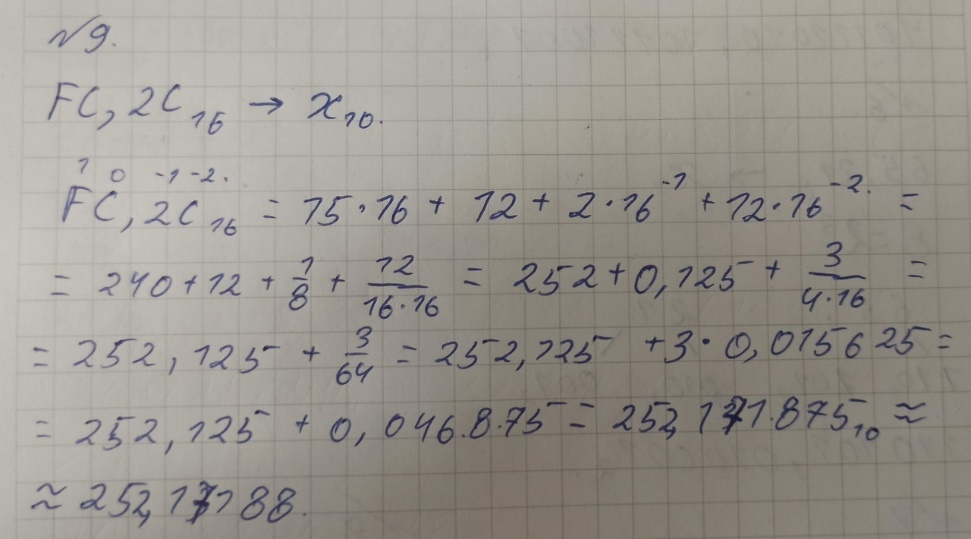 №9.
FC,2C₁₆ → x₁₀.
¹ ⁰ ⁻¹ ⁻².
FC,2C₁₆ = 15·16 + 12 + 2·16⁻¹ + 12·16⁻². =
= 240 + 12 + 1/8 + 12/(16·16) = 252 + 0,125 + 3/(4·16) =
= 252,125 + 3/64 = 252,125 + 3·0,015625 =
= 252,125 + 0,046.8.75 = 252,171.875₁₀ ≈
≈ 252,17188.